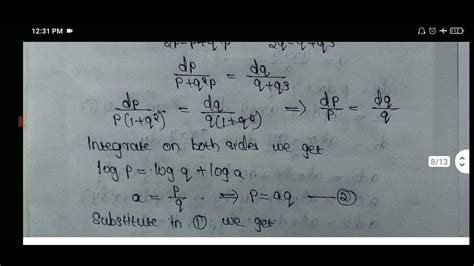 12:31 PM
2p-p+q²p 2q-q+q3
dp/p+q²p = dq/q+q3
dp/p(1+q²) = dq/q(1+q²) ⇒ dp/p = dq/q
Integrate on both sides we get
8/13
log p = log q + log a
a = p/q ⇒ p = aq — ②
Substitute in ① we get